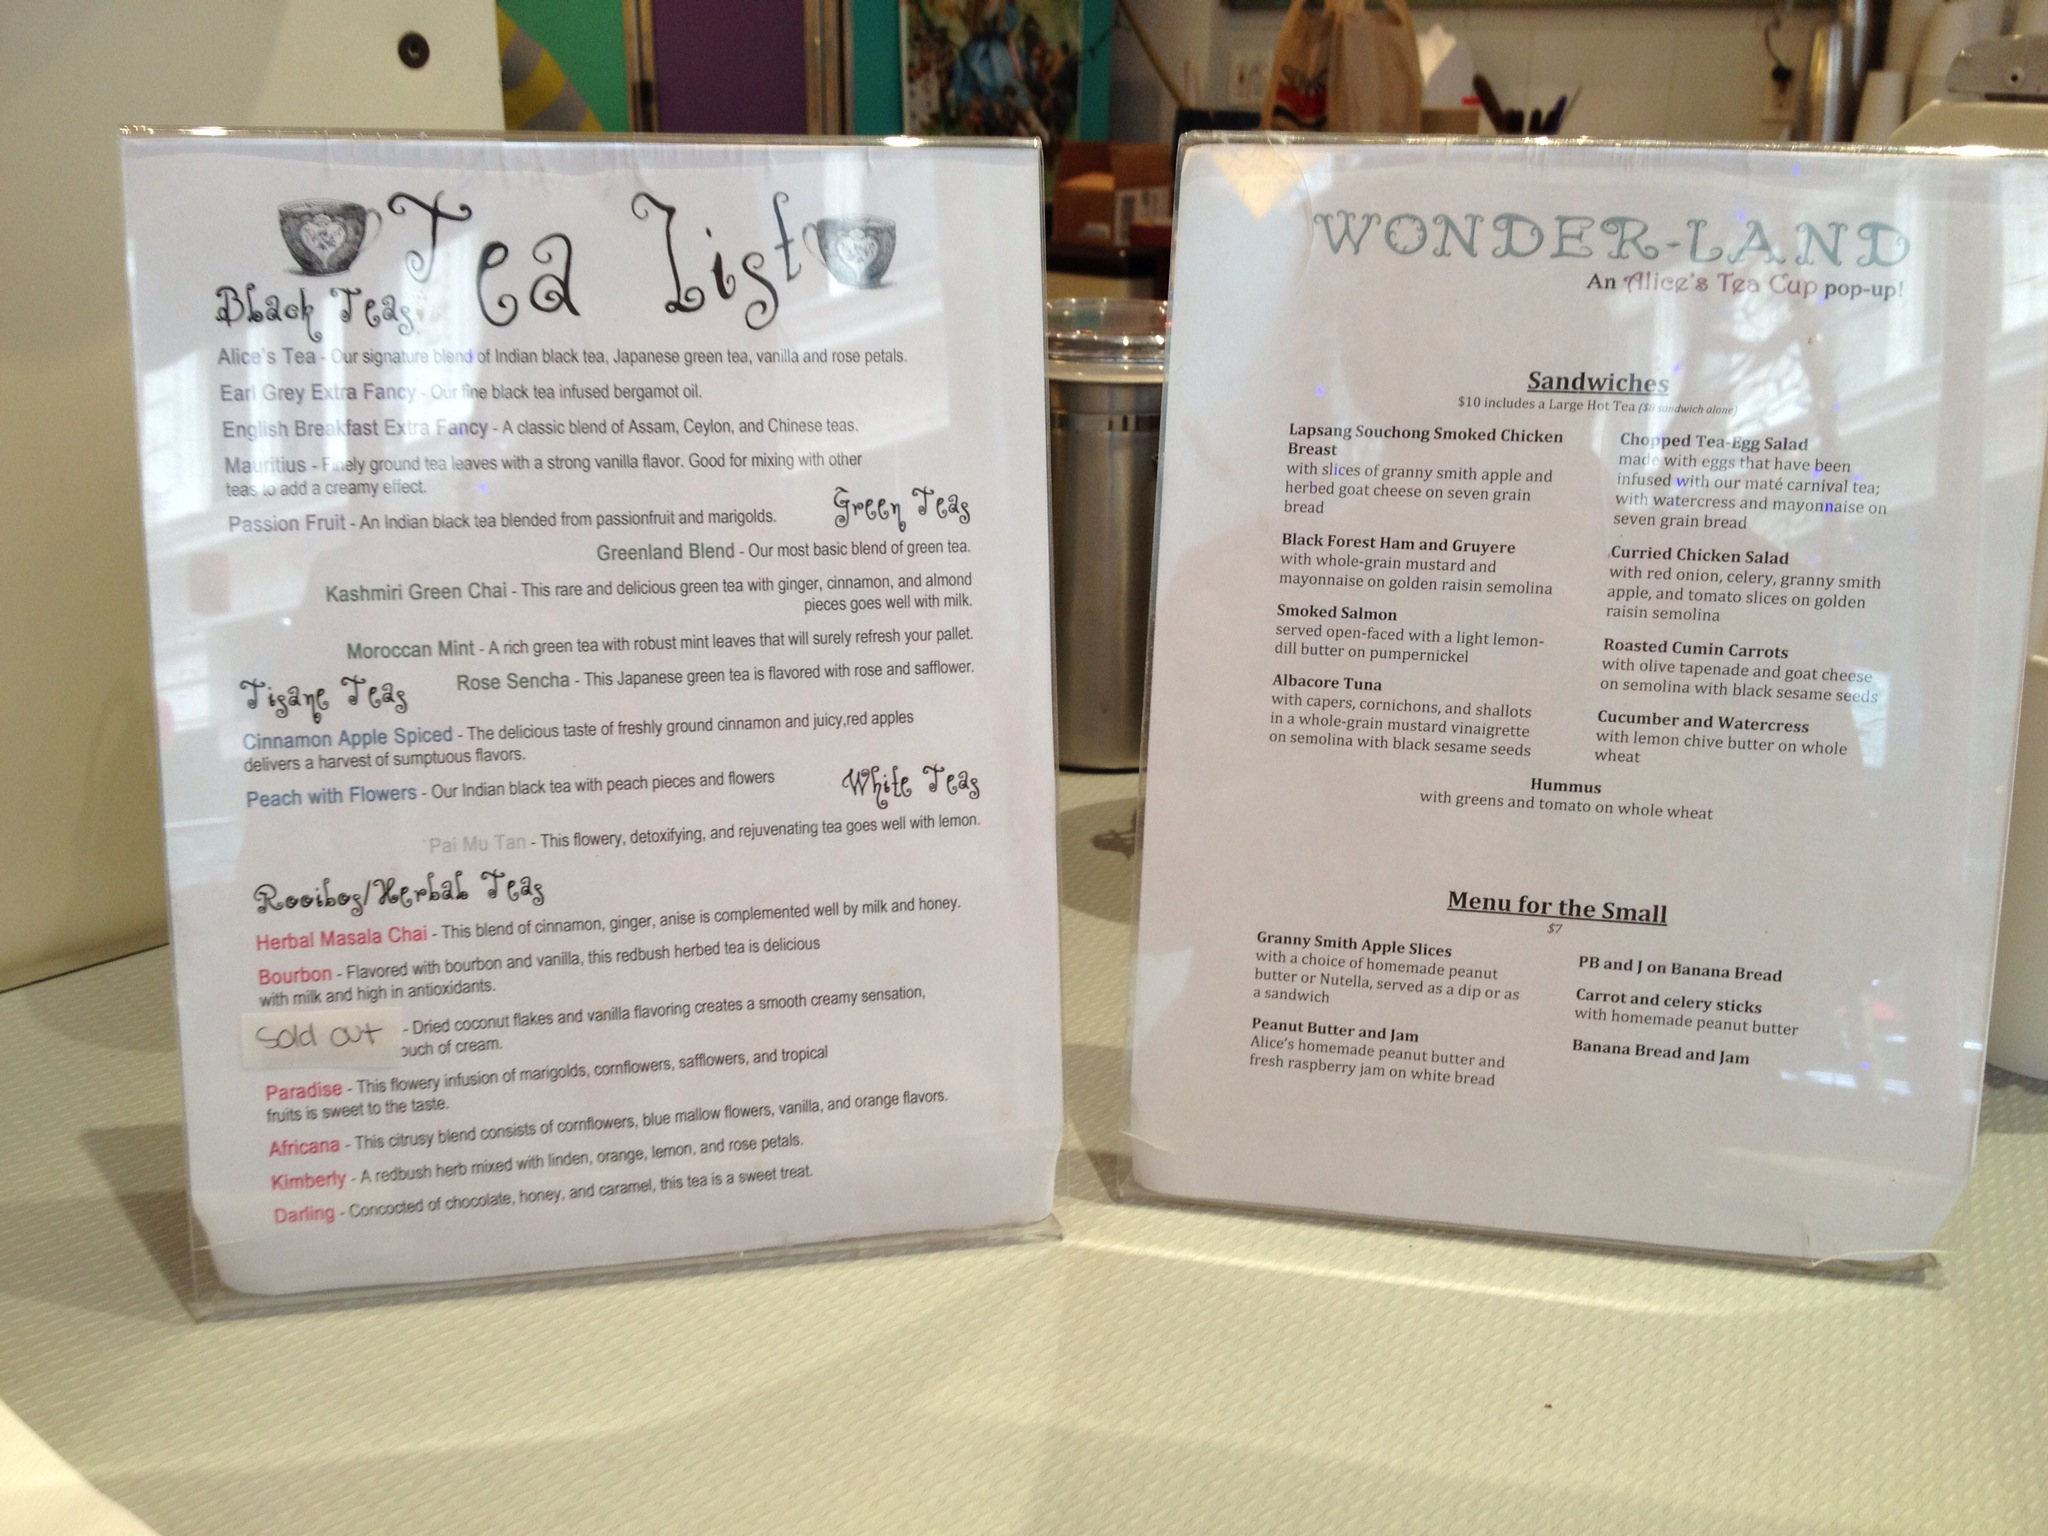 Tea List
Black Teas
Alice's Tea - Our signature blend of Indian black tea, Japanese green tea, vanilla and rose petals.
Earl Grey Extra Fancy - Our fine black tea infused bergamot oil.
English Breakfast Extra Fancy - A classic blend of Assam, Ceylon, and Chinese teas.
Mauritius - Finely ground tea leaves with a strong vanilla flavor. Good for mixing with other
teas to add a creamy effect.
Passion Fruit - An Indian black tea blended from passionfruit and marigolds.
Green Teas
Greenland Blend - Our most basic blend of green tea.
Kashmiri Green Chai - This rare and delicious green tea with ginger, cinnamon, and almond
pieces goes well with milk.
Moroccan Mint - A rich green tea with robust mint leaves that will surely refresh your pallet.
Rose Sencha - This Japanese green tea is flavored with rose and safflower.
Tisane Teas
Cinnamon Apple Spiced - The delicious taste of freshly ground cinnamon and juicy,red apples
delivers a harvest of sumptuous flavors.
Peach with Flowers - Our Indian black tea with peach pieces and flowers
White Teas
Pai Mu Tan - This flowery, detoxifying, and rejuvenating tea goes well with lemon.
Rooibos/Herbal Teas
Herbal Masala Chai - This blend of cinnamon, ginger, anise is complemented well by milk and honey.
Bourbon - Flavored with bourbon and vanilla, this redbush herbed tea is delicious
with milk and high in antioxidants.
Sold out - Dried coconut flakes and vanilla flavoring creates a smooth creamy sensation,
of cream.
Paradise - This flowery infusion of marigolds, cornflowers, safflowers, and tropical
fruits is sweet to the taste.
Africana - This citrusy blend consists of cornflowers, blue mallow flowers, vanilla, and orange flavors.
Kimberly - A redbush herb mixed with linden, orange, lemon, and rose petals.
Darling - Concocted of chocolate, honey, and caramel, this tea is a sweet treat.
WONDER-LAND
An Alice's Tea Cup pop-up!
Sandwiches
$10 includes a Large Hot Tea ($8 sandwich alone)
Lapsang Souchong Smoked Chicken
Breast
with slices of granny smith apple and
herbed goat cheese on seven grain
bread
Black Forest Ham and Gruyere
with whole-grain mustard and
mayonnaise on golden raisin semolina
Smoked Salmon
served open-faced with a light lemon-
dill butter on pumpernickel
Albacore Tuna
with capers, cornichons, and shallots
in a whole-grain mustard vinaigrette
on semolina with black sesame seeds
Chopped Tea-Egg Salad
made with eggs that have been
infused with our maté carnival tea;
with watercress and mayonnaise on
seven grain bread
Curried Chicken Salad
with red onion, celery, granny smith
apple, and tomato slices on golden
raisin semolina
Roasted Cumin Carrots
with olive tapenade and goat cheese
on semolina with black sesame seeds
Cucumber and Watercress
with lemon chive butter on whole
wheat
Hummus
with greens and tomato on whole wheat
Menu for the Small
$7
Granny Smith Apple Slices
with a choice of homemade peanut
butter or Nutella, served as a dip or as
a sandwich
Peanut Butter and Jam
Alice's homemade peanut butter and
fresh raspberry jam on white bread
PB and J on Banana Bread
Carrot and celery sticks
with homemade peanut butter
Banana Bread and Jam